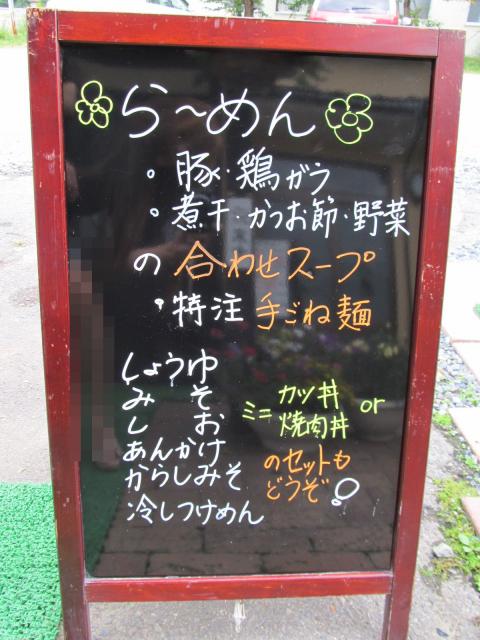 ら〜めん
・豚・鶏ガラ
・煮干・かつお節・野菜
の合わせスープ
・特注手ごね麺
しょうゆ
みそ
しお
あんかけ
からしみそ
冷しつけめん
ミニ カツ丼 or
焼肉丼
のセットも
どうぞ!